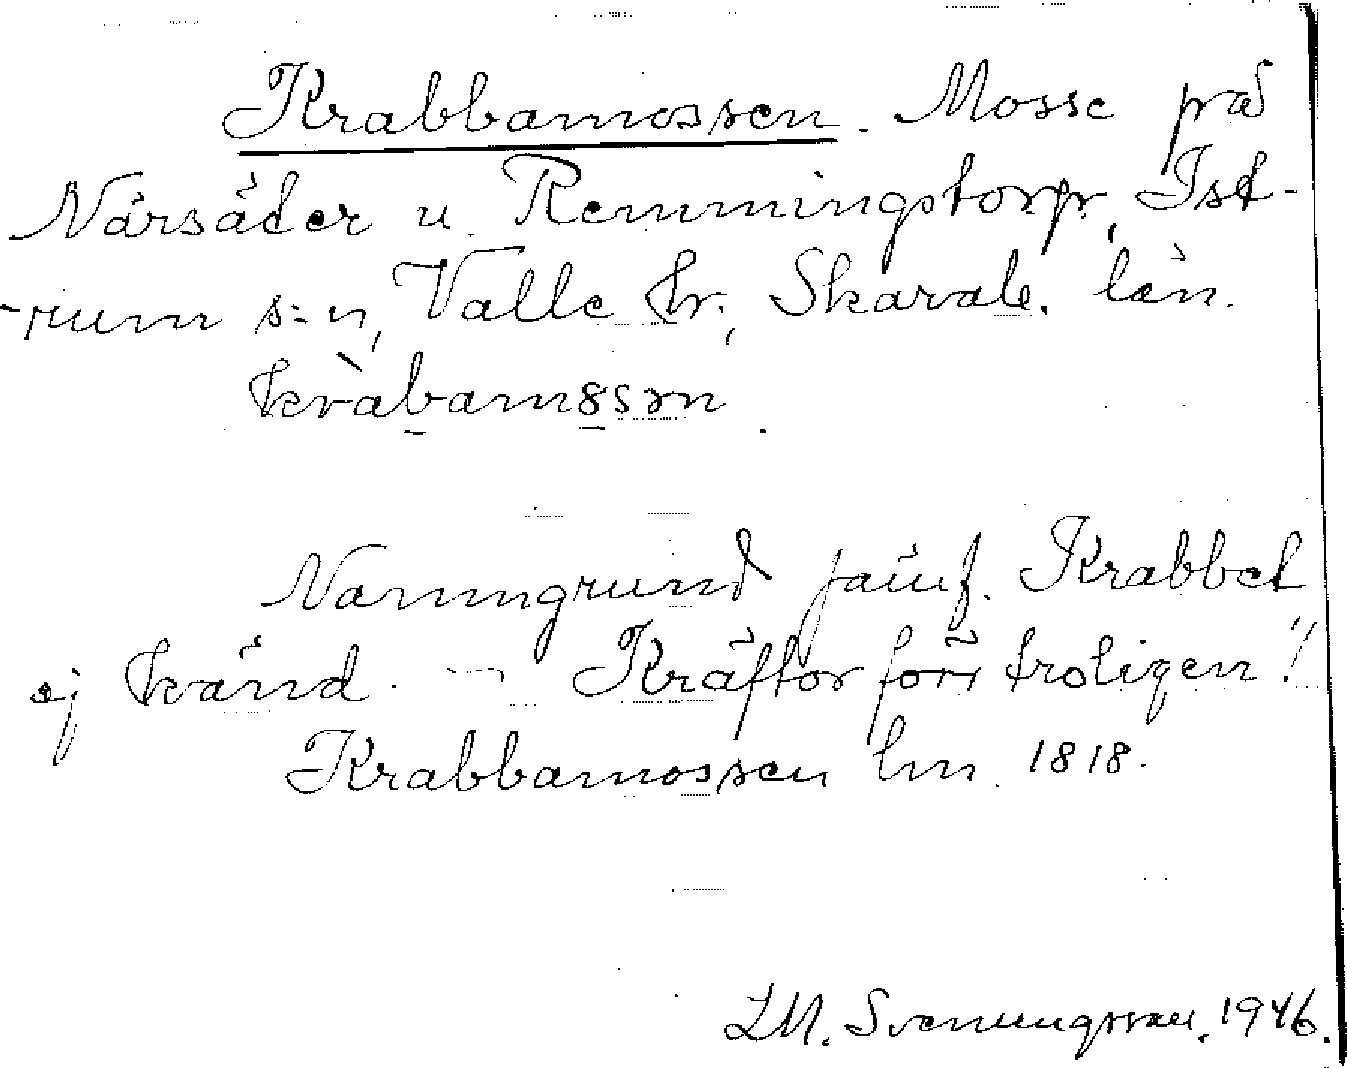 Krabbamossen. Mosse på
Nårsäter u. Remmingstorp, Ist-
-rum s:n, Valle hr., Skarab. län.
kràbamssn.
Namngrund jämf. Krabbet
ej känd. — "Kräftor förr troligen".
Krabbamossen Lm. 1818.
LM. Svenungsson. 1946.